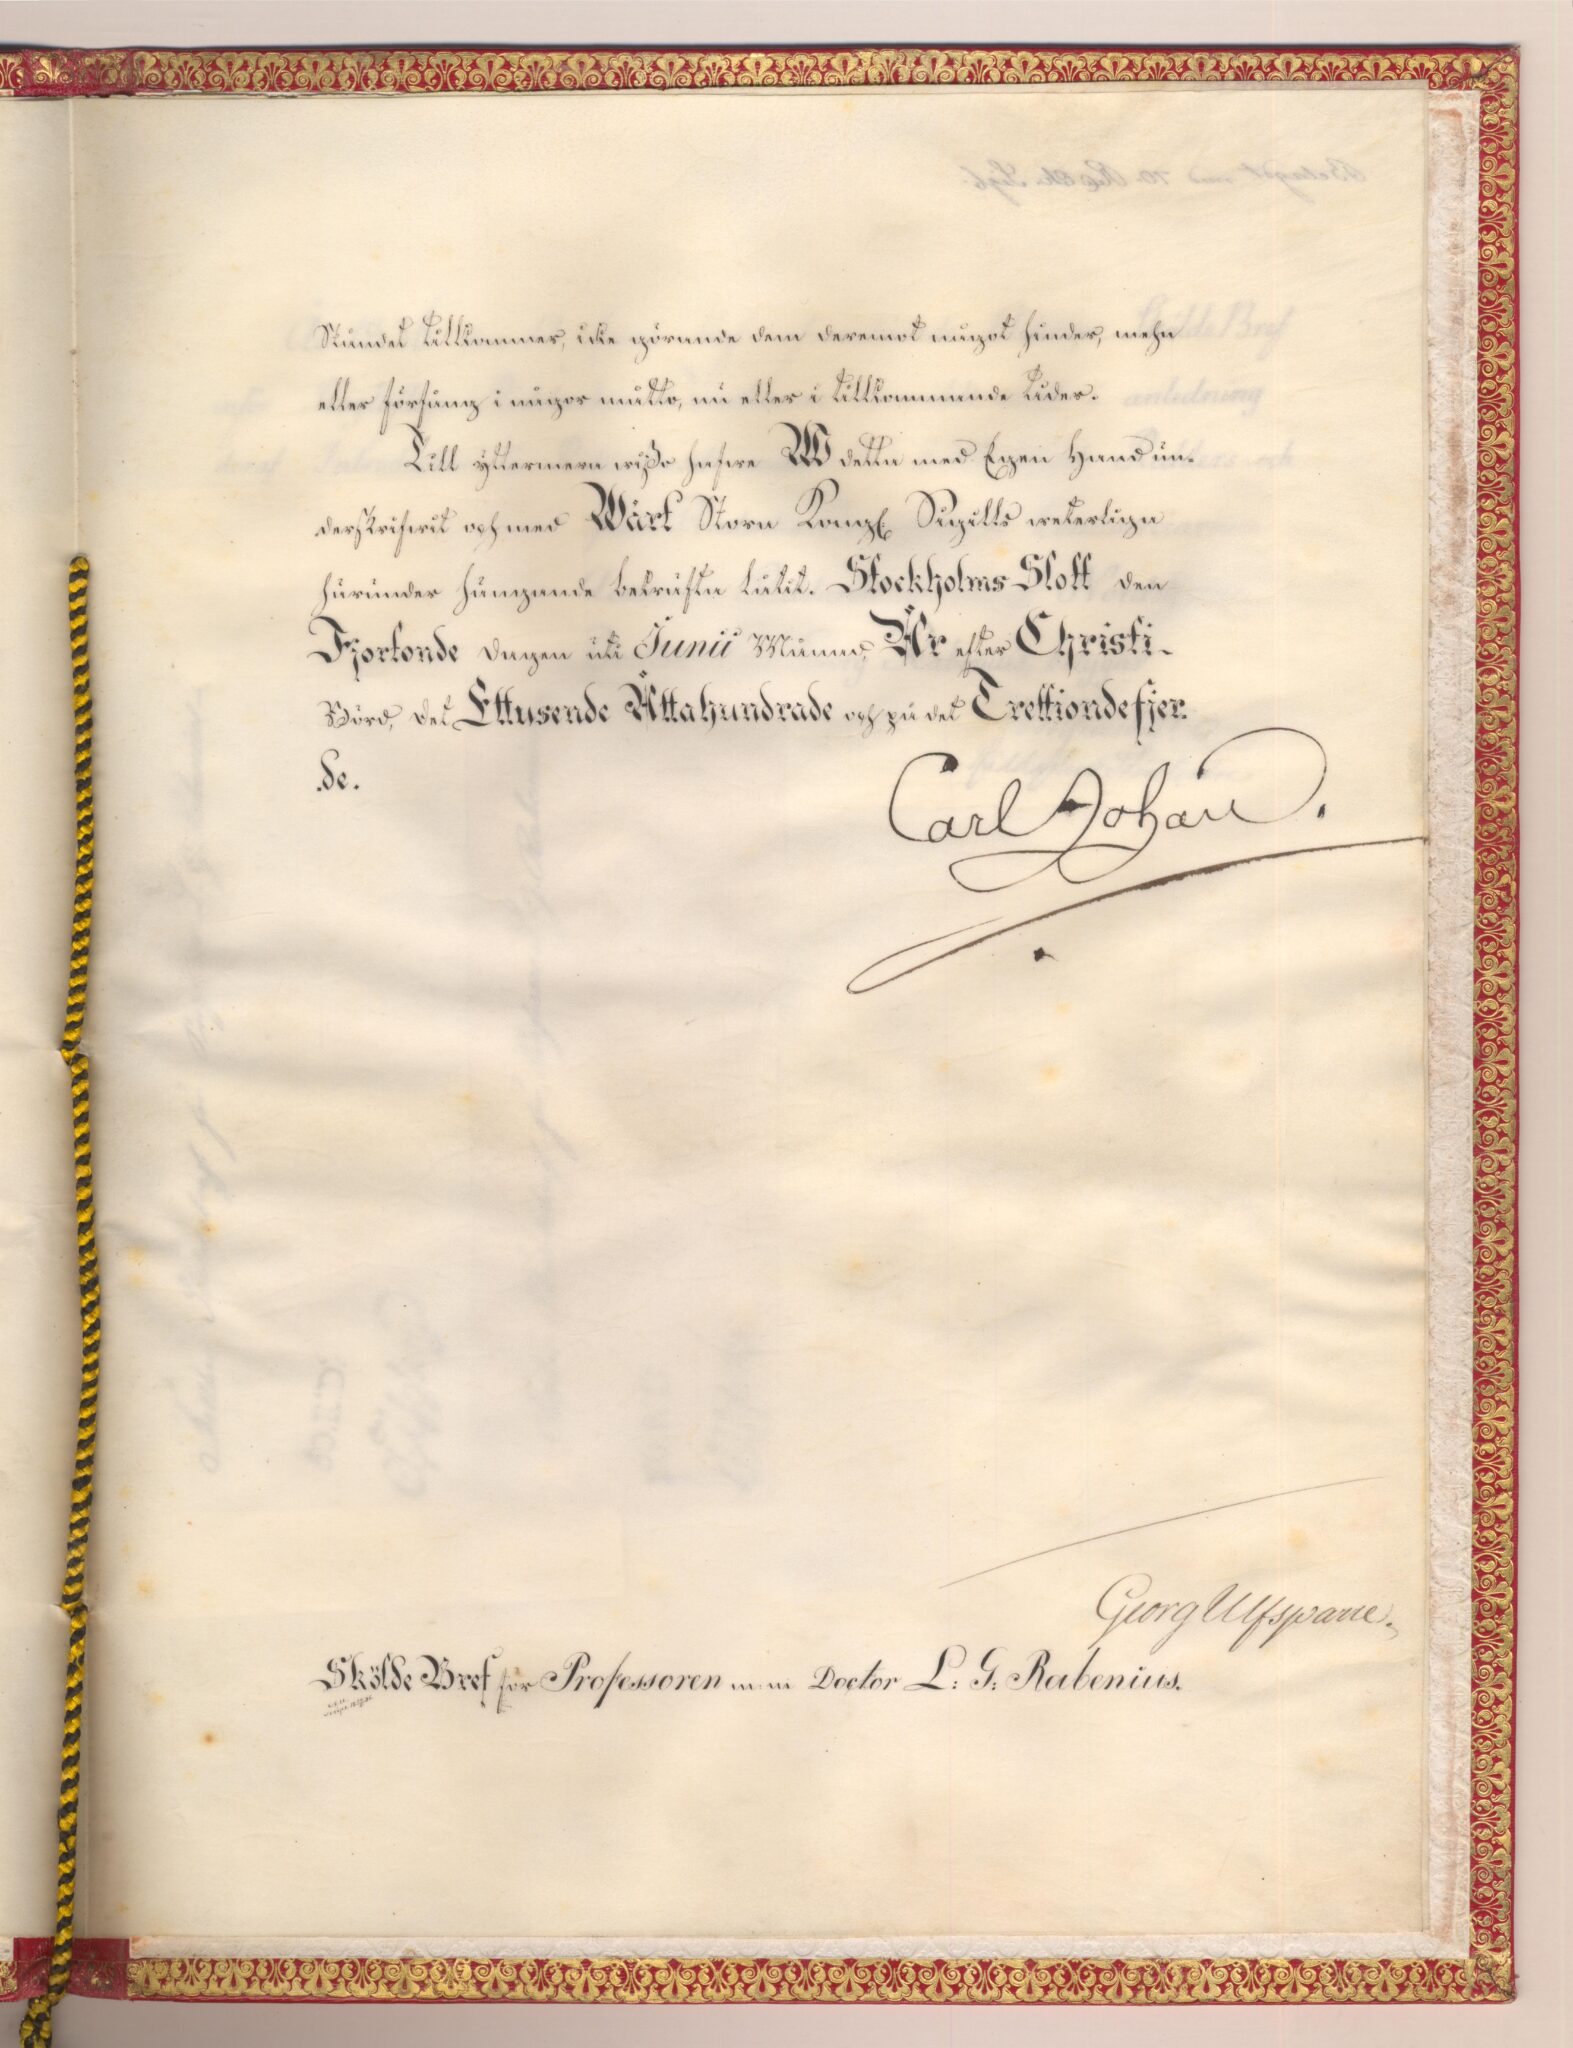 Ståndet tillkommer, icke görande dem deremot något hinder, mehn
eller förfång i någor måtto, nu eller i tillkommande tider.
Till yttermera wißo hafwe Wi detta med Egen Hand un-
derskrifwit och med Wårt Stora Kongl. Sigills wetterliga
härunder hängande bekräfta låtit. Stockholms Slott den
Fjortonde dagen uti Junii Månad, År efter Christi
Börd, det Ettusende Åttahundrade och på det Trettiondefjer-
de.
Carl Johan.
Georg Ulfsparre.
Skölde Bref för Professoren m. m. Doctor L: G: Rabenius.